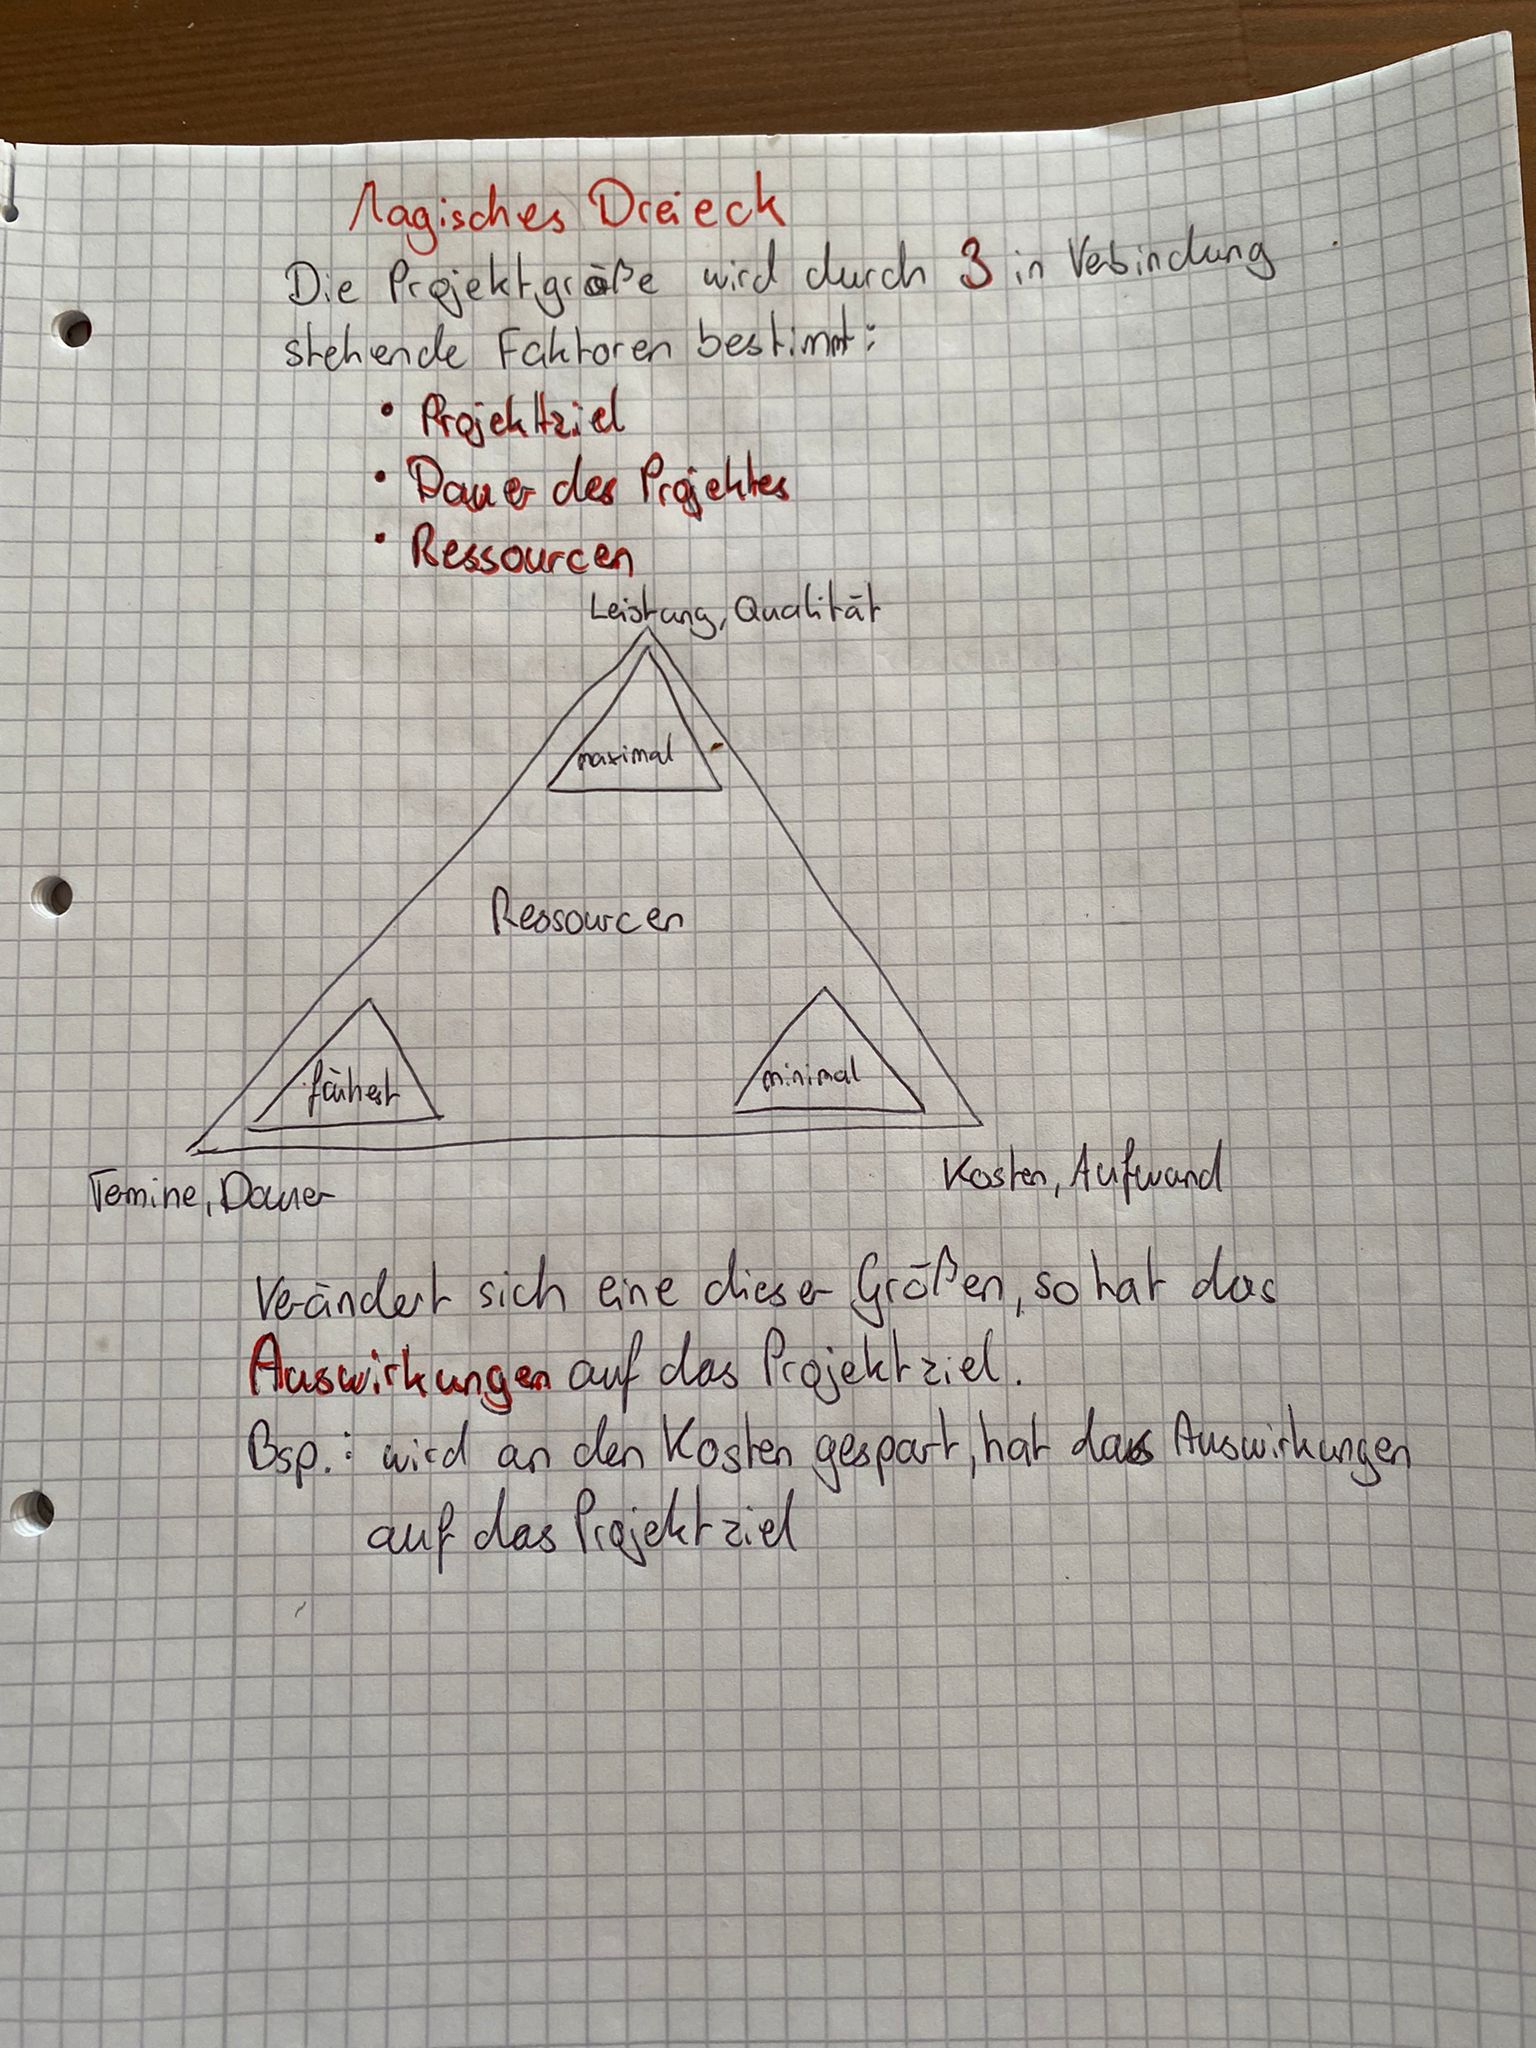 Magisches Dreieck
Die Projektgröße wird durch 3 in Verbindung
stehende Faktoren bestimmt:
• Projektziel
• Dauer des Projektes
• Ressourcen
Leistung, Qualität
maximal
Ressourcen
frühest
minimal
Termine, Dauer
Kosten, Aufwand
Verändert sich eine dieser Größen, so hat das
Auswirkungen auf das Projektziel.
Bsp.: wird an den Kosten gespart, hat das Auswirkungen
auf das Projektziel